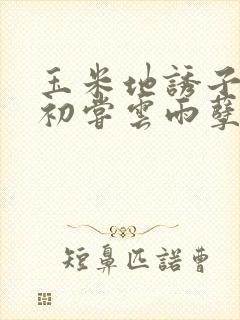 玉米地誘子
初嘗雲雨孽
短鼻匹諾曹